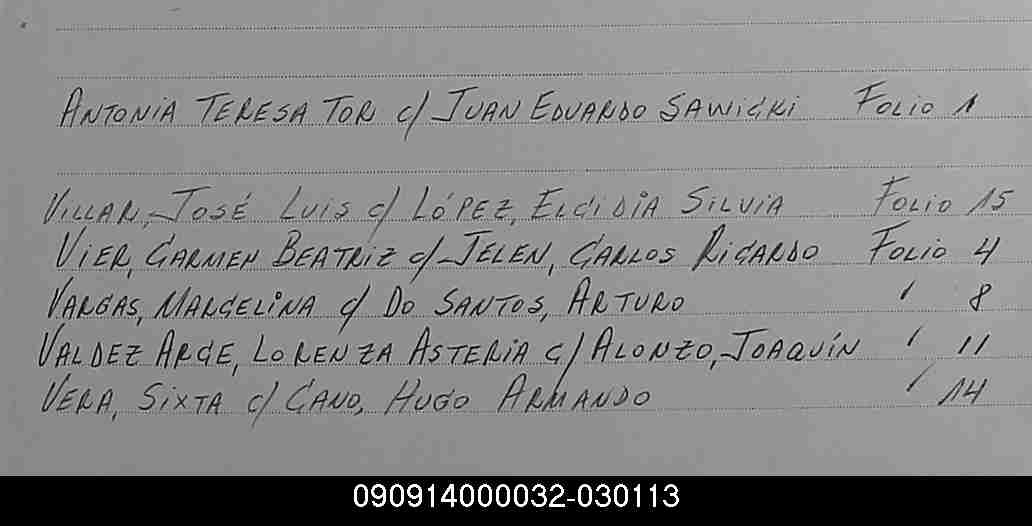 ANTONIA TERESA TOR c/ JUAN EDUARDO SAWICKI FOLIO 1
VILLAR, JOSÉ LUIS c/ LÓPEZ, ELCIDIA SILVIA FOLIO 15
VIER, CARMEN BEATRIZ c/ JELEN, CARLOS RICARDO FOLIO 4
VARGAS, MARCELINA c/ DO SANTOS, ARTURO ' 8
VALDEZ ARCE, LORENZA ASTERIA c/ ALONZO, JOAQUÍN ' 11
VERA, SIXTA c/ CANO, HUGO ARMANDO ' 14
090914000032-030113